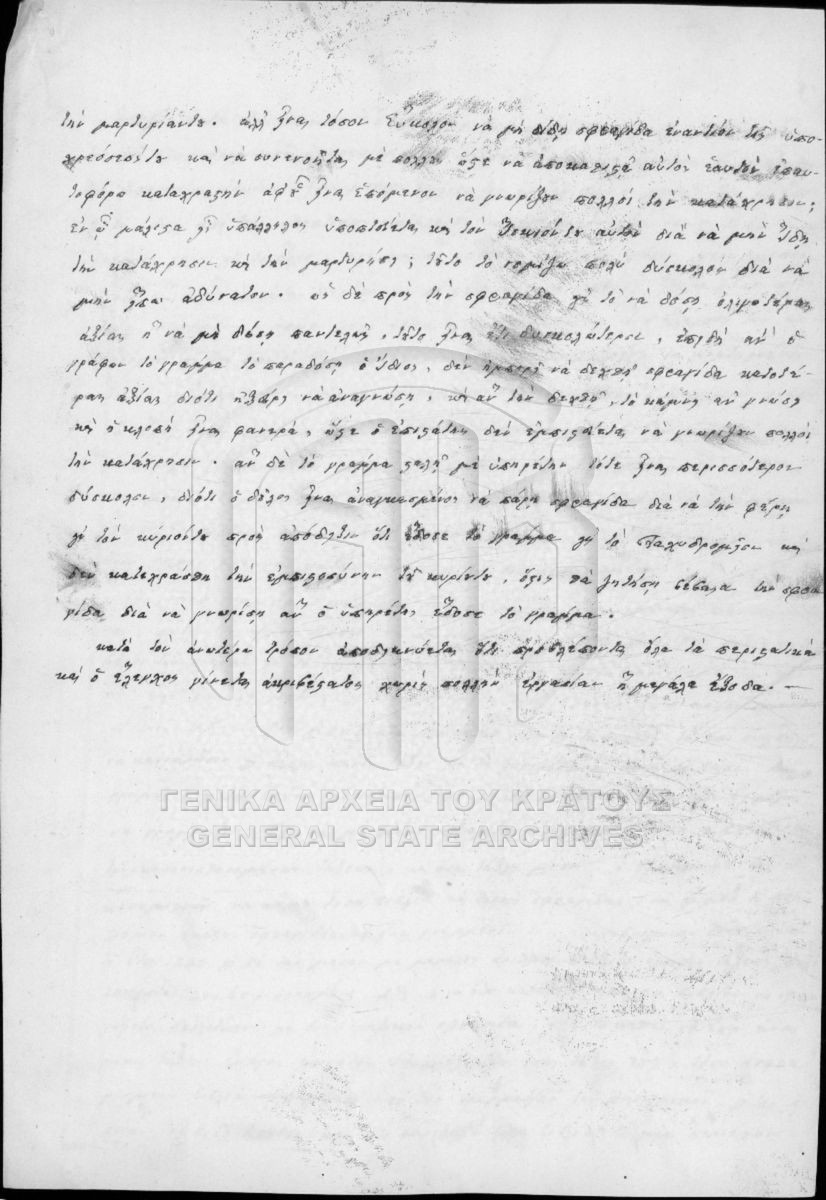 τὴν μαρτυρίαντου. ἀλλ' εἶναι τόσον εὔκολον νὰ μὴ δίδῃ σφραγίδα ἐναντίον τῆς ὑπο-
χρεώσεώςτου καὶ νὰ συνενοῆται μὲ πολλοὺς ὥστε νὰ ἀποκαταστῇ αὐτὸς ἑαυτὸν ἐπαυ-
τοφόρῳ καταχραστὴν ἀφοῦ εἶναι ἑπόμενον νὰ γνωρίζουν πολλοὶ τὴν κατάχρησιν;
ἐν ᾧ μάλιστα ὑπάλληλος ὑποπτεύεται καὶ τὸν ἴσκιόντου αὐτὸν διὰ νὰ μὴν ἴδῃ
τὴν κατάχρησιν καὶ τὴν μαρτυρήσῃ; τοῦτο τὸ νομίζω πολὺ δύσκολον διὰ νὰ
μὴν εἴπω ἀδύνατον. ὡς δὲ πρὸς τὴν σφραγίδα τὸ νὰ δόσῃ ὀλιγοτέρας
ἀξίας ἢ νὰ μὴ δόσῃ παντελῶς, τοῦτο εἶναι ἔτι δυσκολώτερον, ἐπειδὴ ἂν ὁ
γράφων τὸ γράμμα τὸ παραδόσῃ ὁ ἴδιος, δὲν ἠμπορεῖ νὰ δεχθῇ σφραγίδα κατωτέ-
ρας ἀξίας διότι ἠξεύρει νὰ ἀναγνώσῃ, καὶ ἂν τὴν δεχθῇ, τὸ κάμνει ἐν γνώσει
καὶ ἡ κλοπὴ εἶναι φανερά, ὥστε ὁ ἐπιστάτης δὲν ἐμπιστεύεται νὰ γνωρίζουν πολλοὶ
τὴν κατάχρησιν. ἂν δὲ τὸ γράμμα σταλῇ μὲ ὑπηρέτην τότε εἶναι περισσότερον
δύσκολον, διότι ὁ δοῦλος εἶναι ἀναγκασμένος νὰ πάρῃ σφραγίδα διὰ νὰ τὴν φέρῃ
εἰς τὸν κύριόντου πρὸς ἀπόδειξιν ὅτι ἔδοσε τὸ γράμμα εἰς τὸ Ταχυδρομεῖον καὶ
δὲν κατεχράσθη τὴν ἐμπιστοσύνην τοῦ κυρίουτου, ὅστις θὰ ζητήσῃ βέβαια τὴν σφρα
γίδα διὰ νὰ γνωρίσῃ ἂν ὁ ὑπηρέτης ἔδοσε τὸ γράμμα.
κατὰ τὸν ἀνωτέρω τρόπον ἀποδεικνύεται ὅτι προβλέπονται ὅλα τὰ περιστατικὰ
καὶ ὁ ἔλεγχος γίνεται ἀκριβέστατος χωρὶς πολλὴν ἐργασίαν ἢ μεγάλα ἔξοδα. —
ΓΕΝΙΚΑ ΑΡΧΕΙΑ ΤΟΥ ΚΡΑΤΟΥΣ
GENERAL STATE ARCHIVES